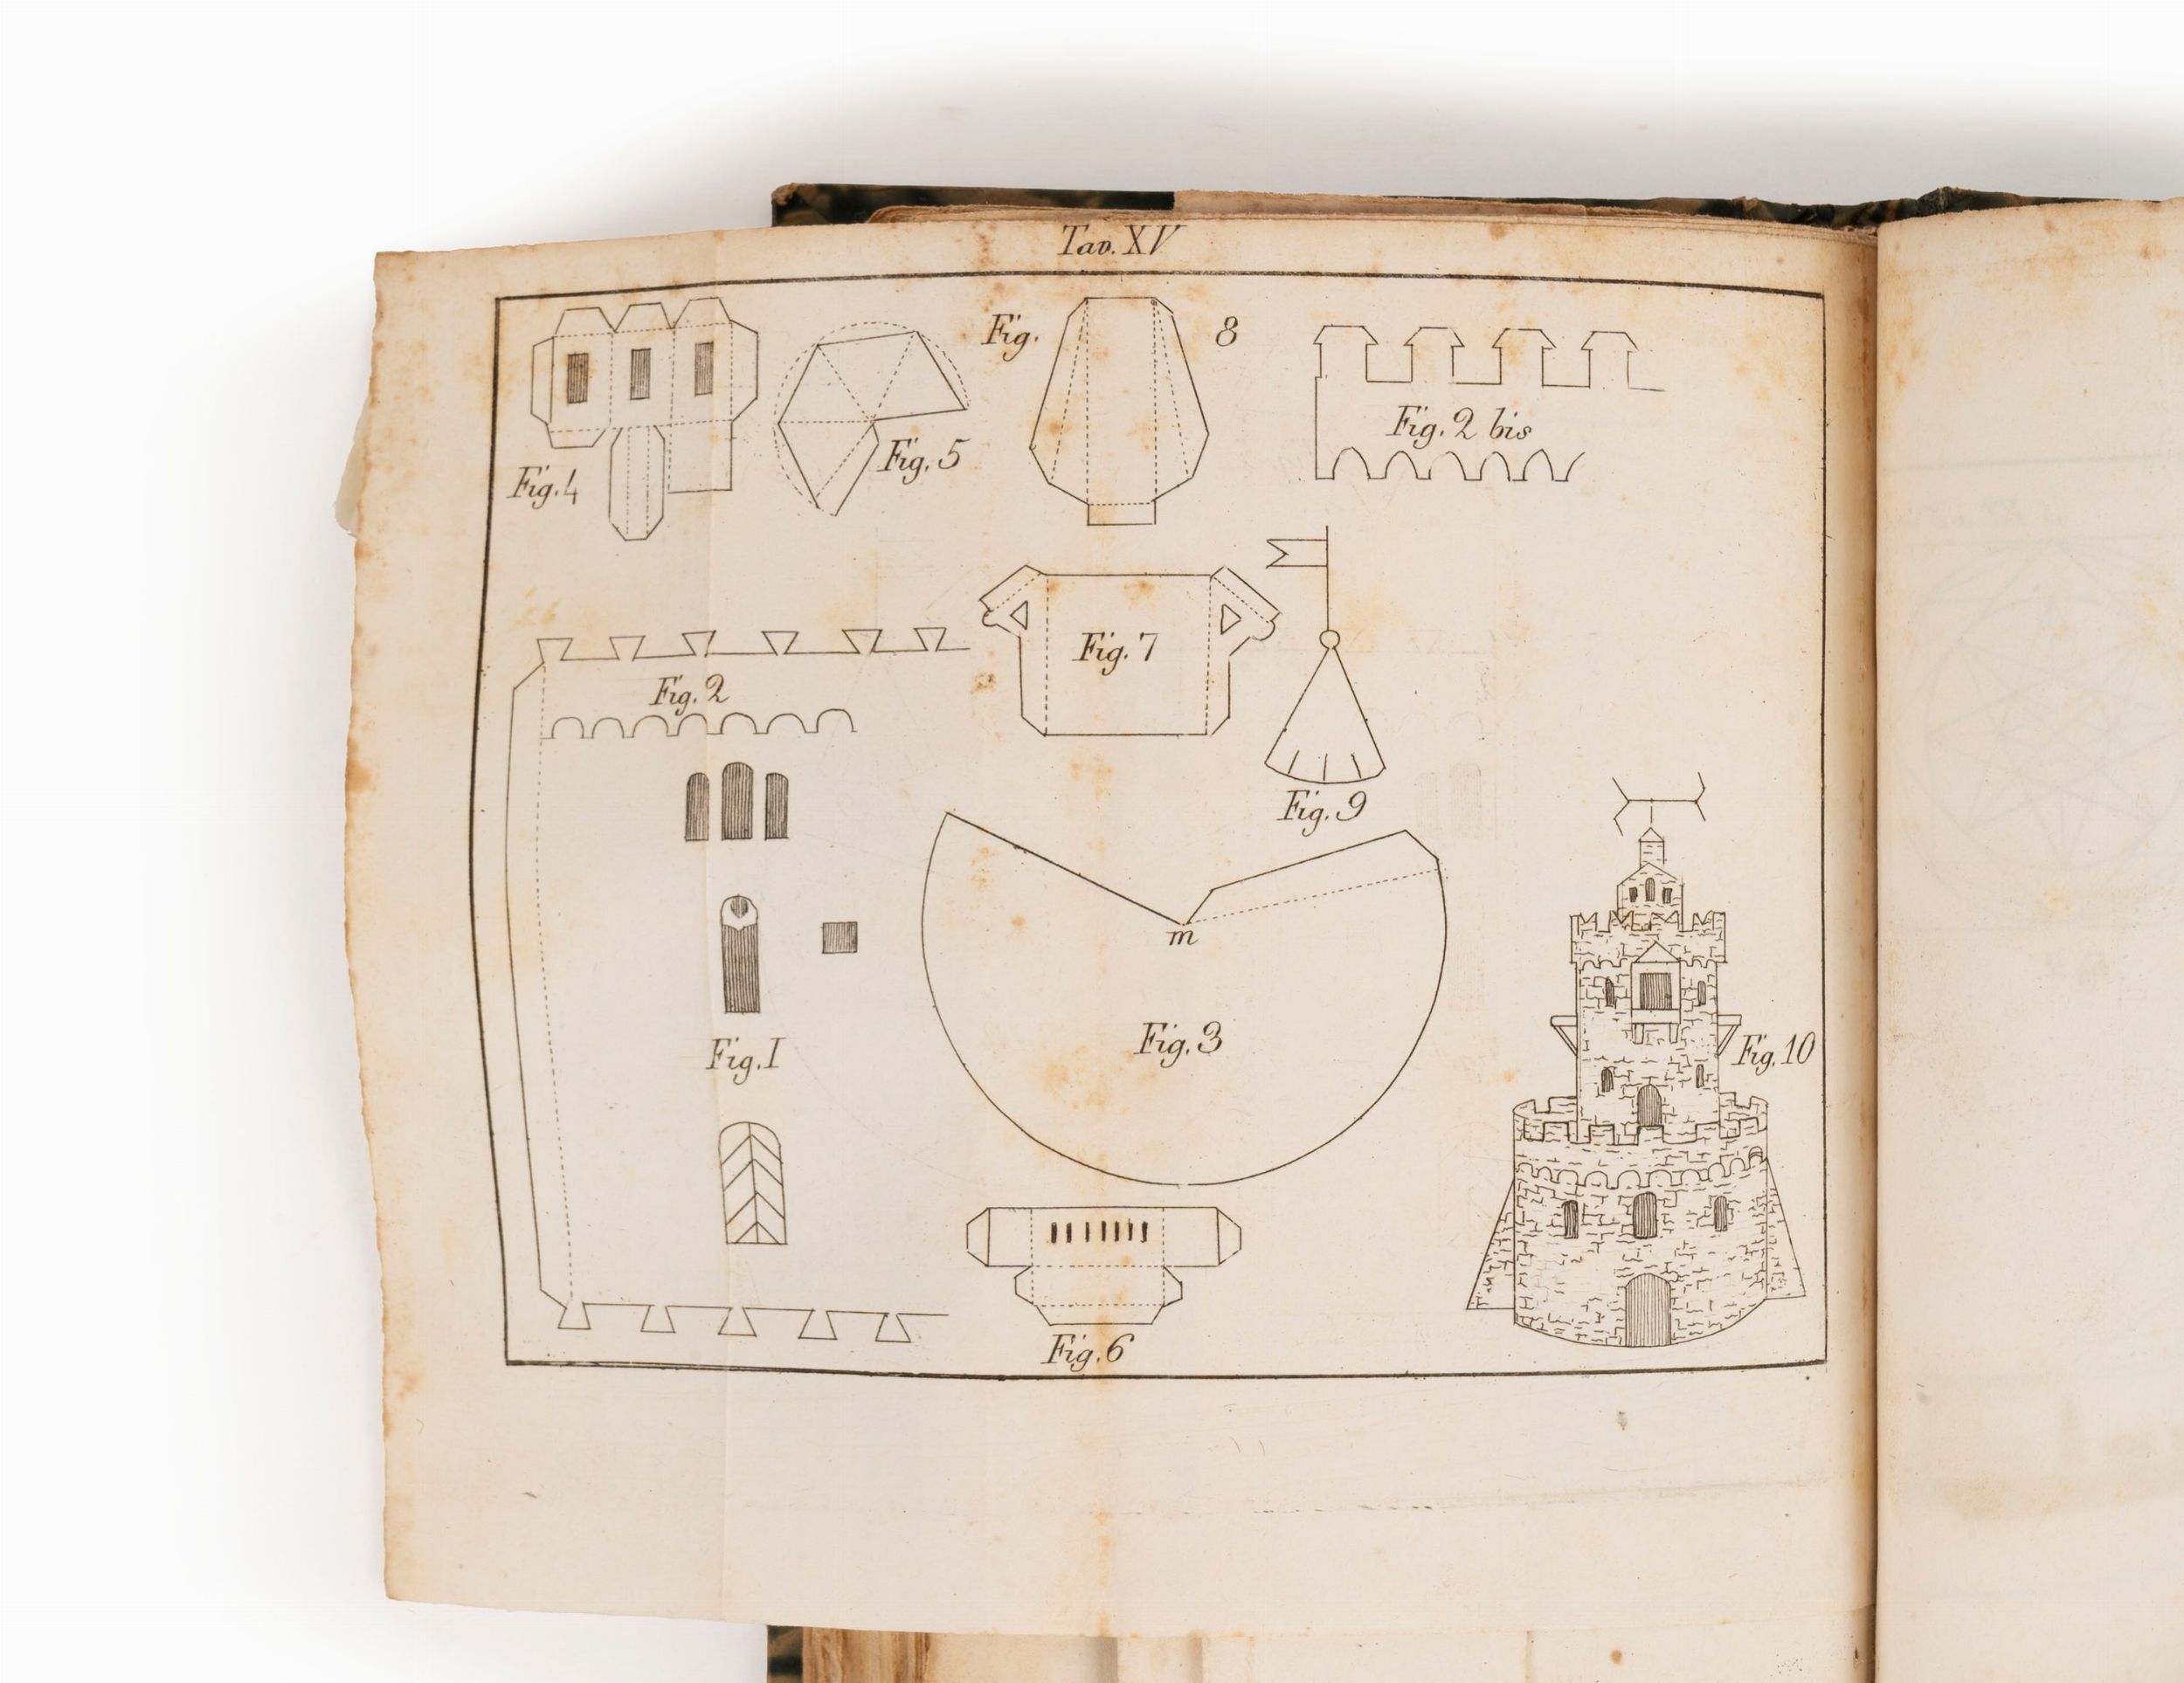 Tav. XV
Fig. 8
Fig. 2 bis
Fig. 5
Fig. 4
Fig. 7
Fig. 2
Fig. 9
m
Fig. 3
Fig. 1
Fig. 10
Fig. 6